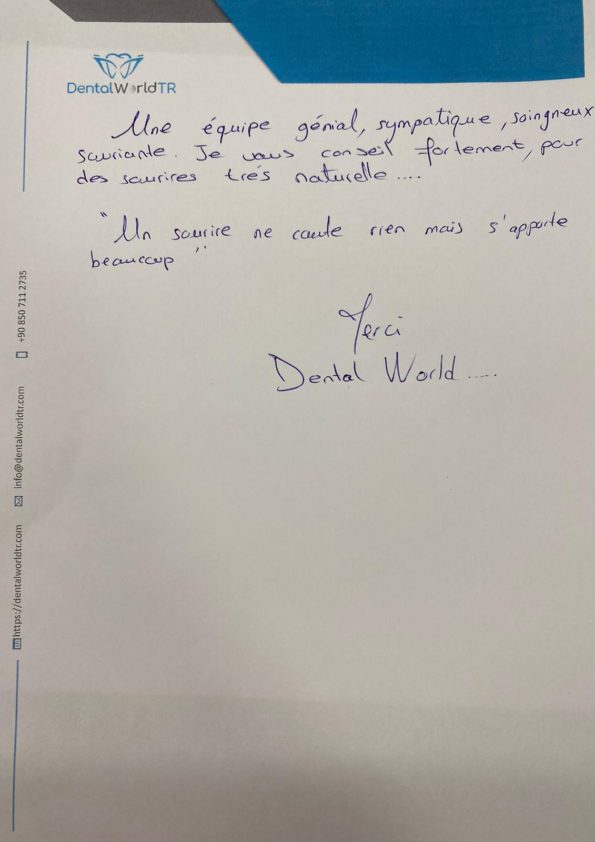 DentalWorldTR
Une équipe génial, sympatique, soingneux
souriante. Je vous conseil fortement, pour
des sourires trés naturelle....
"Un sourire ne coute rien mais s'apporte
beaucoup"
Merci
Dental World.....
+90 850 711 2735
info@dentalworldtr.com
https://dentalworldtr.com